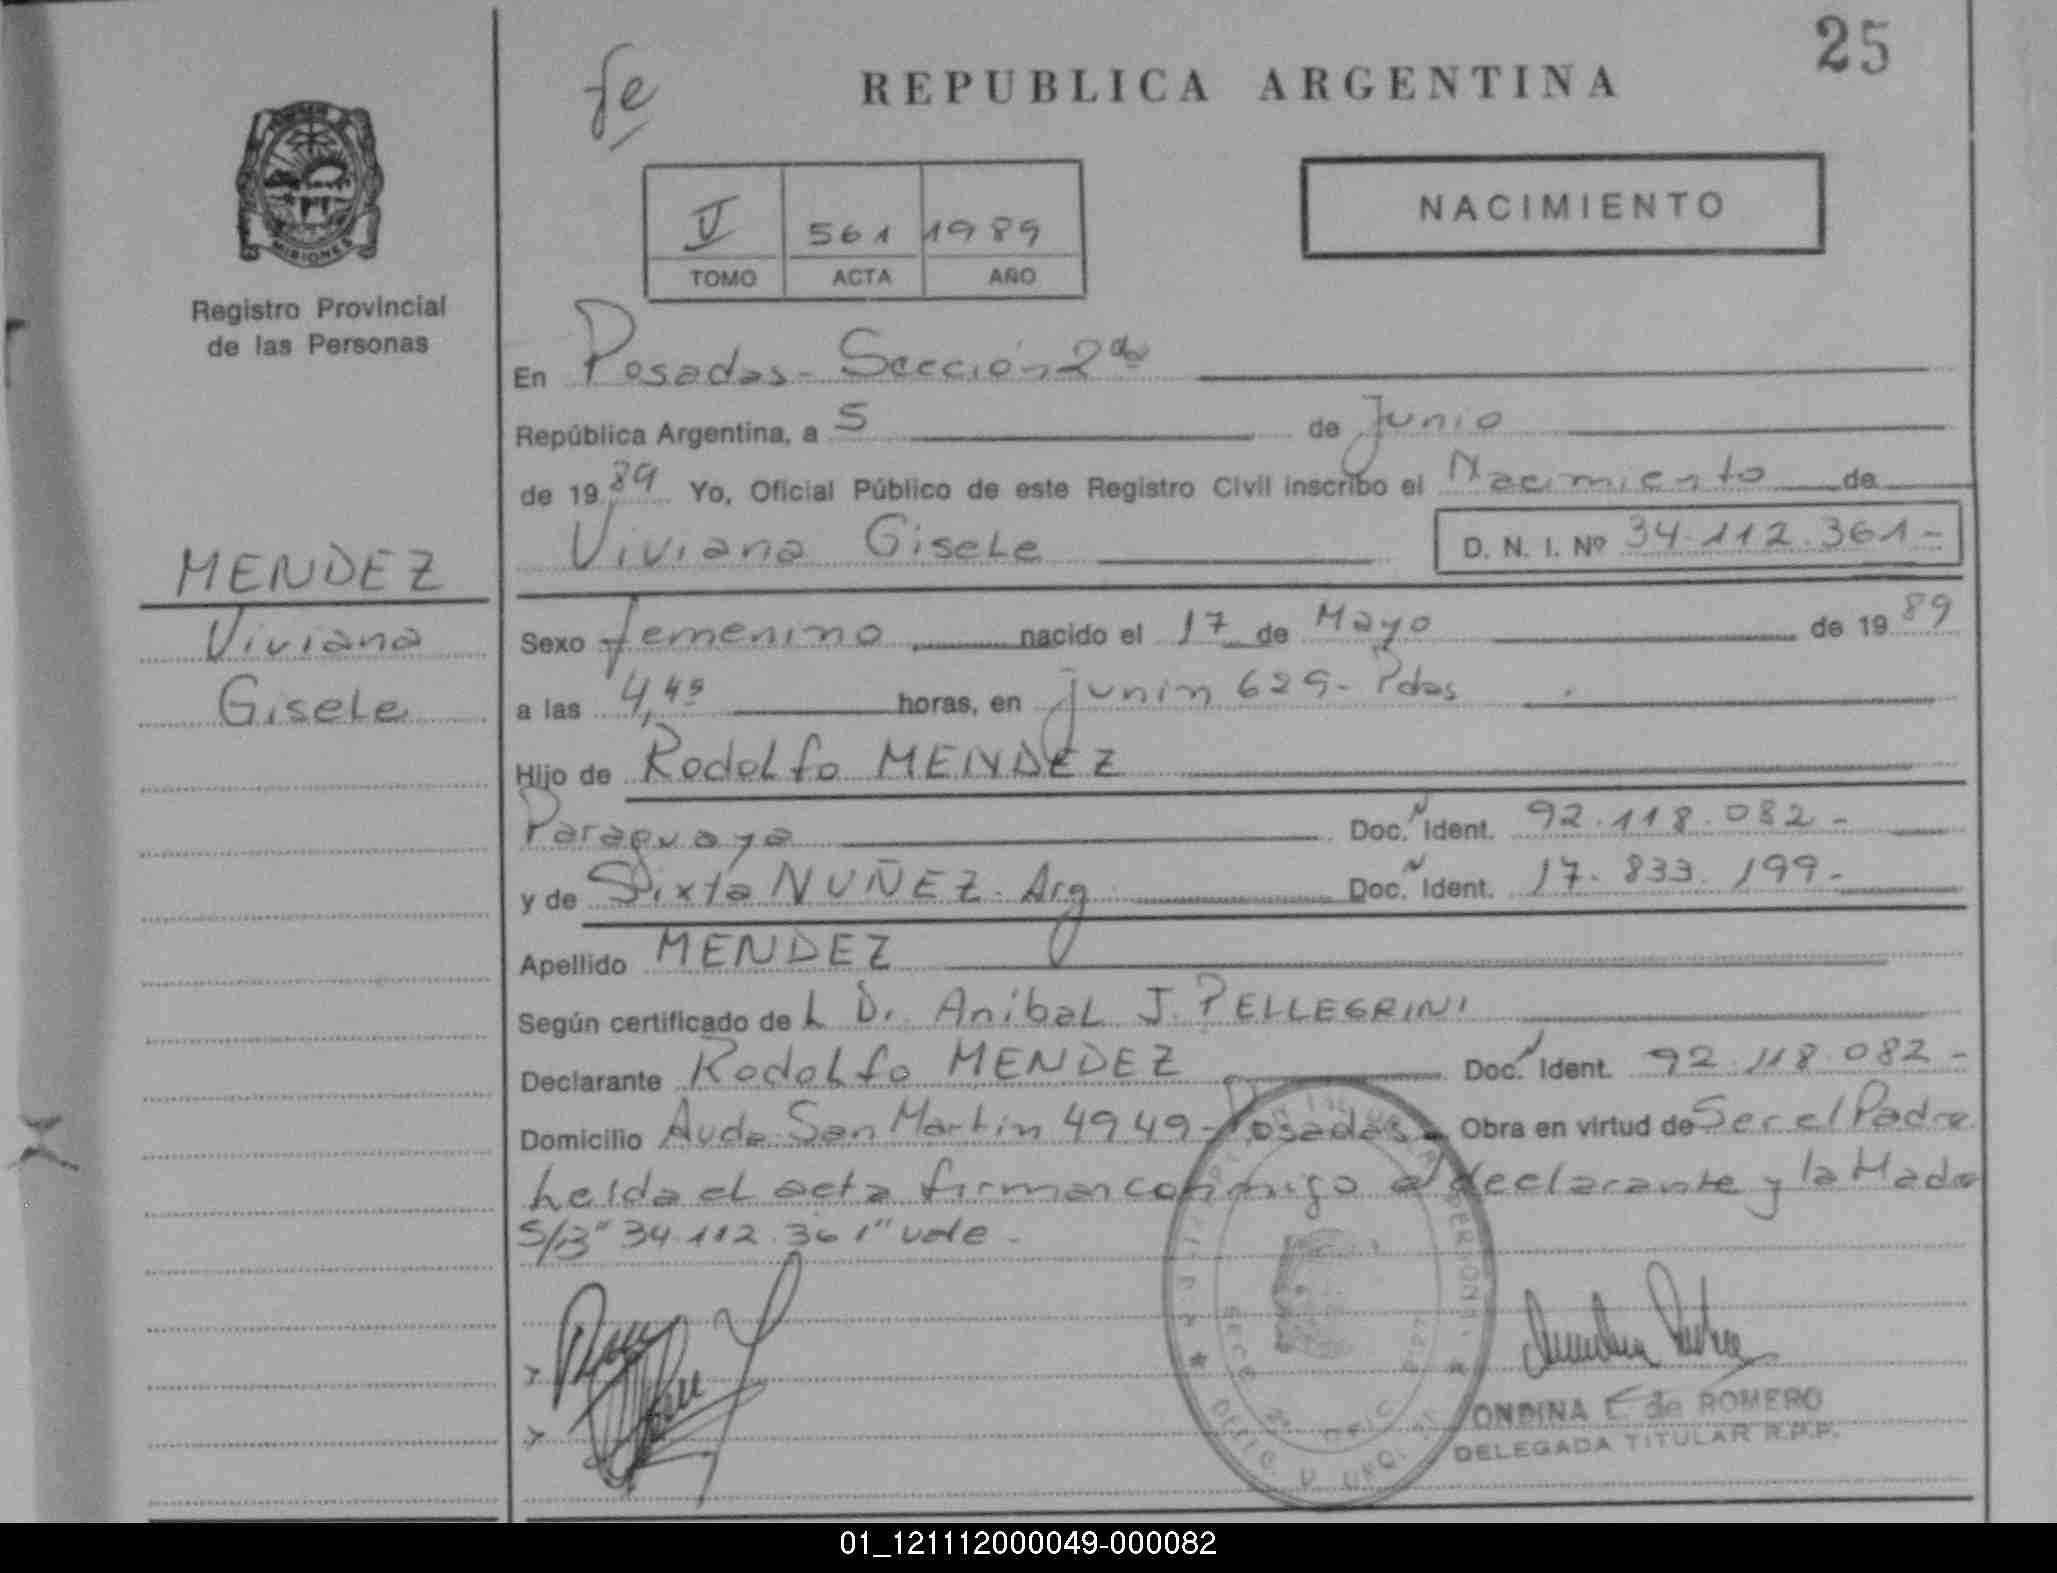 25
fe
REPUBLICA ARGENTINA
MISIONES
Registro Provincial
de las Personas
V 561 1989
TOMO ACTA AÑO
NACIMIENTO
En Posadas - Sección 2da
República Argentina, a 5 de Junio
de 1989 Yo, Oficial Público de este Registro Civil inscribo el Nacimiento de
Viviana Gisele D. N. I. Nº 34.112.361-
MENDEZ
Viviana
Gisele
Sexo femenino nacido el 17 de Mayo de 1989
a las 4,45 horas, en junin 629 - Pdas
Hijo de Rodolfo MENDEZ
Paraguaya Doc. Ident. 92.118.082-
y de Sixta NUÑEZ - Arg Doc. Ident. 17.833.199-
Apellido MENDEZ
Según certificado de L Dr. Anibal J. PELLEGRINI
Declarante Rodolfo MENDEZ Doc. Ident. 92.118.082-
Domicilio Avda San Martin 4949 - Posadas - Obra en virtud de Ser el Padre
Leida el acta firman conmigo el declarante y la Madre
S/B "34.112.361" vale -
ONDINA E de ROMERO
DELEGADA TITULAR R.P.P.
01_121112000049-000082